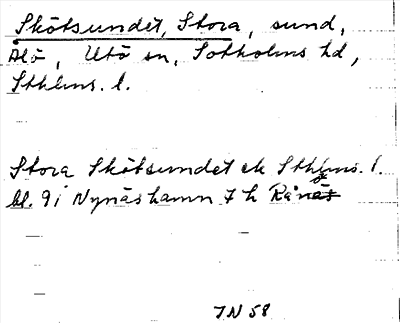 Skötsundet, Stora, sund,
Ålö, Utö sn, Sotholms hd,
Sthlms. l.
Stora Skötsundet ek Sthlms. l.
bl. 9i Nynäshamn 7 h
IN 58